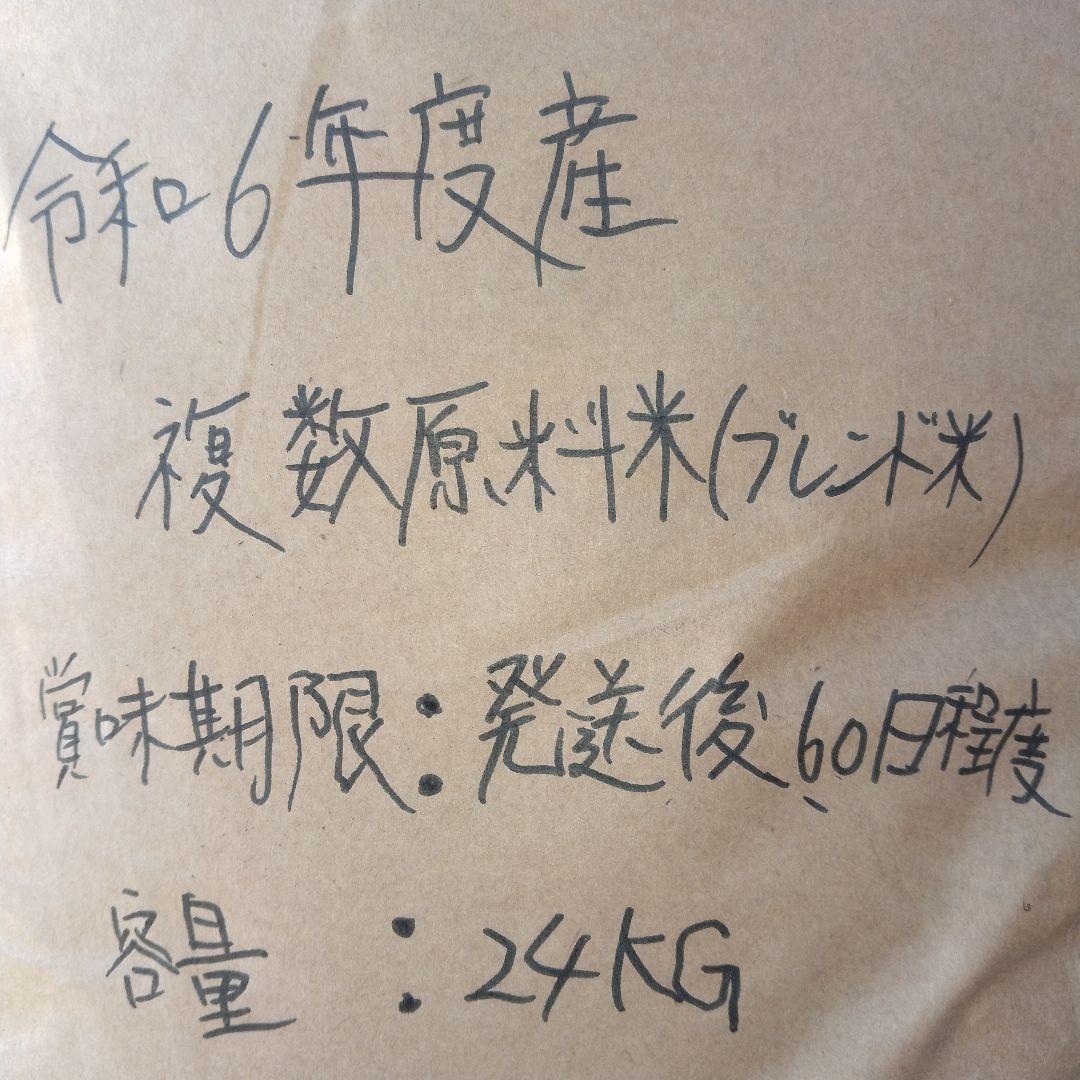 令和6年度産
複数原料米(ブレンド米)
賞味期限：発送後60日程度
容量：24KG